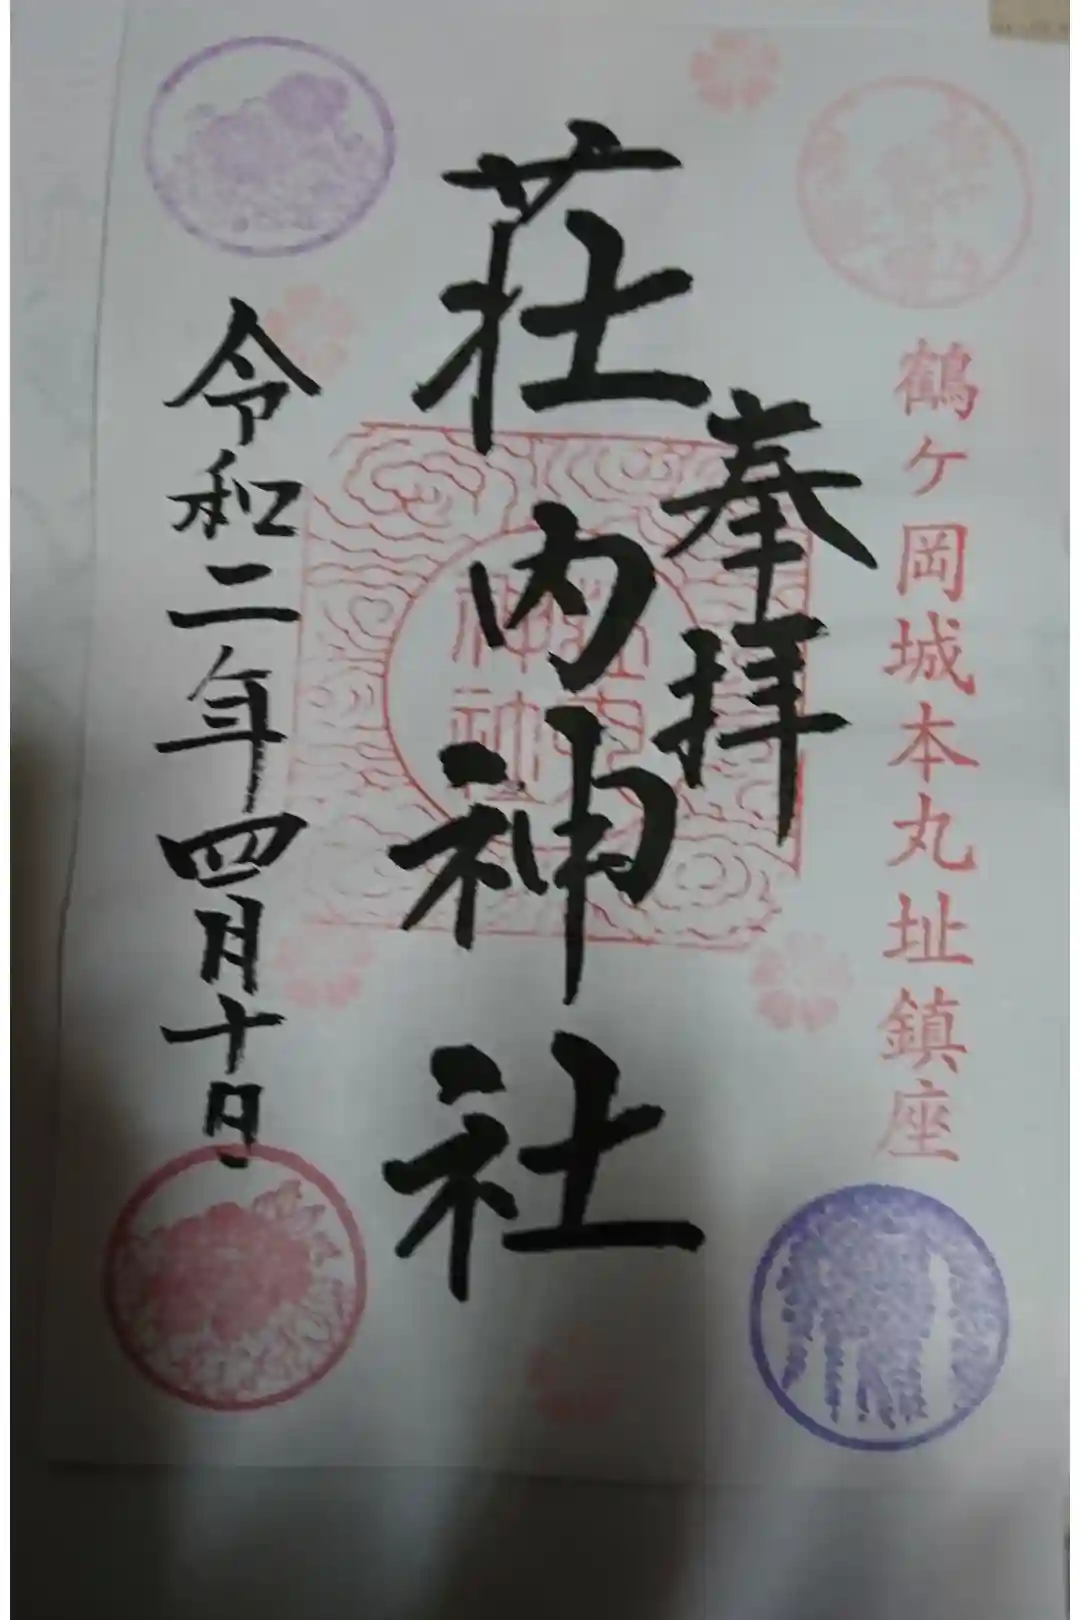 鶴ケ岡城本丸址鎮座
奉拝
荘内神社
令和二年四月十日
荘内
神社